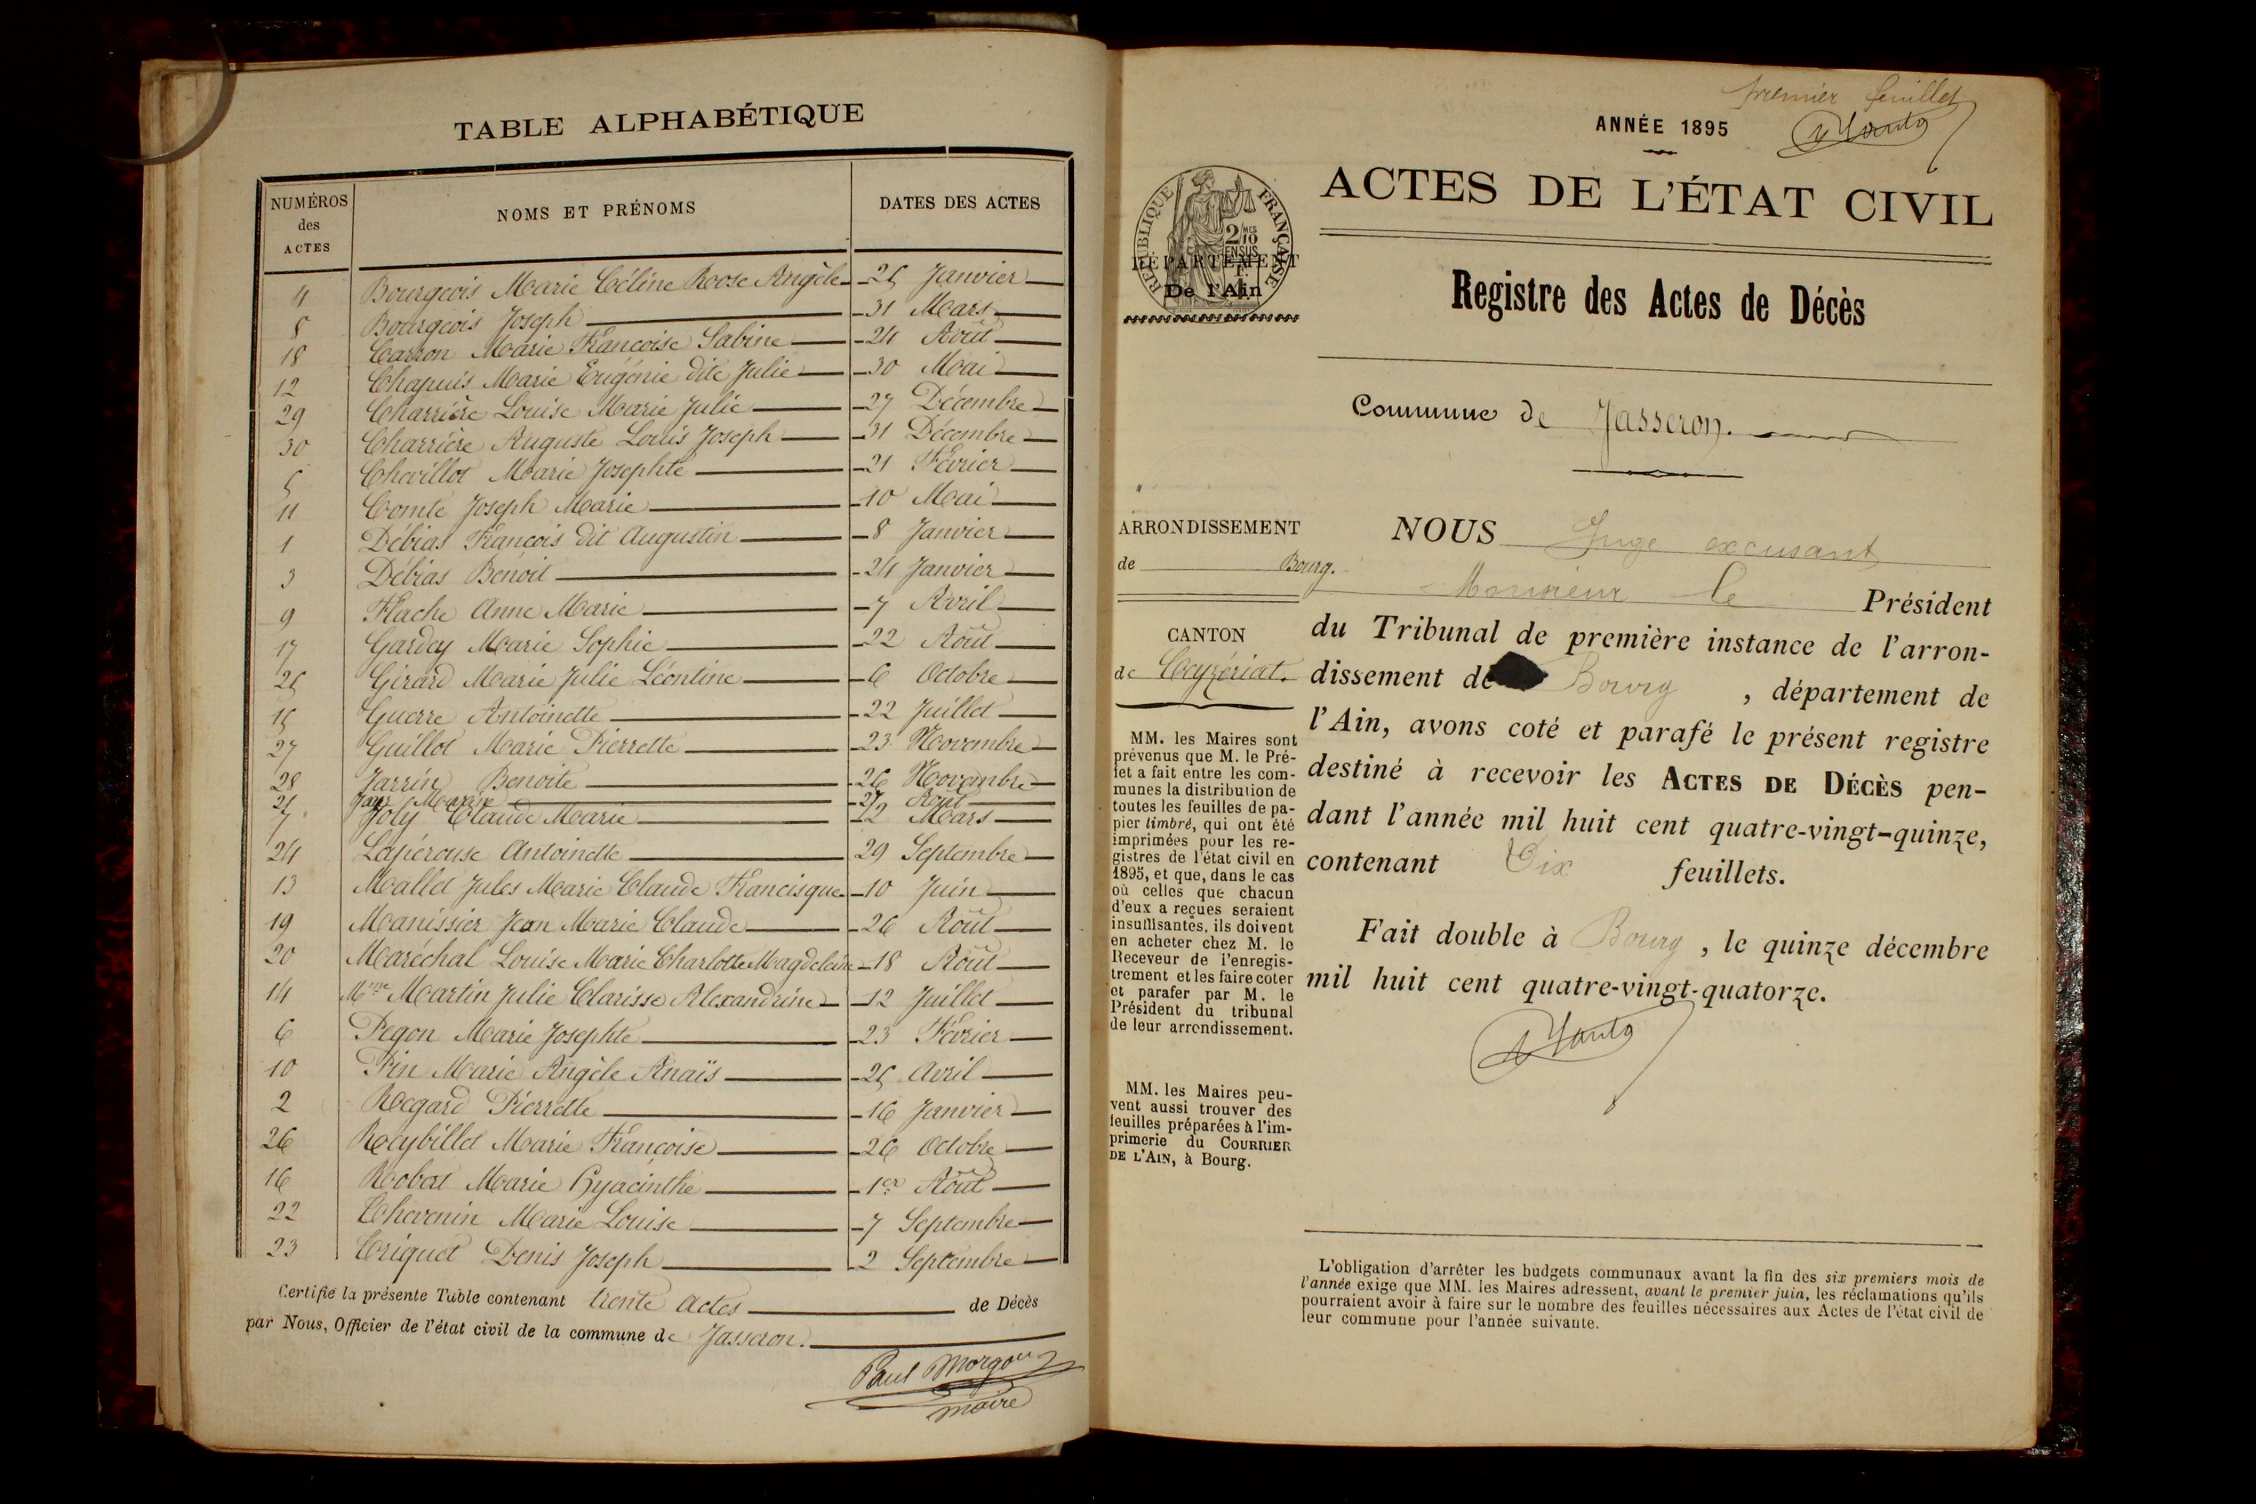 TABLE ALPHABÉTIQUE
NUMÉROS des ACTES NOMS ET PRÉNOMS DATES DES ACTES
4 Bourgeois Marie Céline Roose Angèle 25 Janvier
8 Bourgeois Joseph 31 Mars
18 Carron Marie Françoise Sabine 24 Août
12 Chapuis Marie Eugénie dite Julie 30 Mai
29 Charrière Louise Marie Julie 27 Décembre
30 Charrière Auguste Louis Joseph 31 Décembre
5 Chevillot Marie Josephte 21 Février
11 Comte Joseph Marie 10 Mai
1 Débias François dit Augustin 8 Janvier
3 Débias Benoit 24 Janvier
9 Flache Anne Marie 7 Avril
17 Gardey Marie Sophie 22 Août
25 Girard Marie Julie Léontine 6 Octobre
15 Guerre Antoinette 22 Juillet
27 Guillot Marie Pierrette 23 Novembre
28 Jarrin Benoite 26 Novembre
21 Marie 27 Août
7 Joly Claude Marie 12 Mars
24 Lapérouse Antoinette 29 Septembre
13 Mallet Jules Marie Claude Francisque 10 Juin
19 Manissier Jean Marie Claude 26 Août
20 Maréchal Louise Marie Charlotte Magdeleine 18 Août
14 Mme Martin Julie Clarisse Alexandrine 12 Juillet
6 Pegon Marie Josephte 23 Février
10 Pin Marie Angèle Anaïs 25 Avril
2 Regard Pierrette 16 Janvier
26 Reybillet Marie Françoise 26 Octobre
16 Robert Marie Hyacinthe 1er Août
22 Thevenin Marie Louise 7 Septembre
23 Triquet Denis Joseph 2 Septembre
Certifié la présente Table contenant trente actes de Décès
par Nous, Officier de l'état civil de la commune de Jasseron.
Paul Morgon
maire
premier feuillet
ANNÉE 1895
ACTES DE L'ÉTAT CIVIL
RÉPUBLIQUE FRANÇAISE
2/10 MES
EN SUS
DÉPARTEMENT
De l'Ain
Registre des Actes de Décès
Commune de Jasseron.
ARRONDISSEMENT
de Bourg.
CANTON
de Ceyzériat.
MM. les Maires sont
prévenus que M. le Pré-
fet a fait entre les com-
munes la distribution de
toutes les feuilles de pa-
pier timbré, qui ont été
imprimées pour les re-
gistres de l'état civil en
1895, et que, dans le cas
où celles que chacun
d'eux a reçues seraient
insuffisantes, ils doivent
en acheter chez M. le
Receveur de l'enregis-
trement et les faire coter
et parafer par M. le
Président du tribunal
de leur arrondissement.
MM. les Maires peu-
vent aussi trouver des
feuilles préparées à l'im-
primerie du COURRIER
DE L'AIN, à Bourg.
NOUS Juge excusant
Monsieur le Président
du Tribunal de première instance de l'arron-
dissement de Bourg, département de
l'Ain, avons coté et parafé le présent registre
destiné à recevoir les ACTES DE DÉCÈS pen-
dant l'année mil huit cent quatre-vingt-quinze,
contenant Dix feuillets.
Fait double à Bourg, le quinze décembre
mil huit cent quatre-vingt-quatorze.
L'obligation d'arrêter les budgets communaux avant la fin des six premiers mois de
l'année exige que MM. les Maires adressent, avant le premier juin, les réclamations qu'ils
pourraient avoir à faire sur le nombre des feuilles nécessaires aux Actes de l'état civil de
leur commune pour l'année suivante.